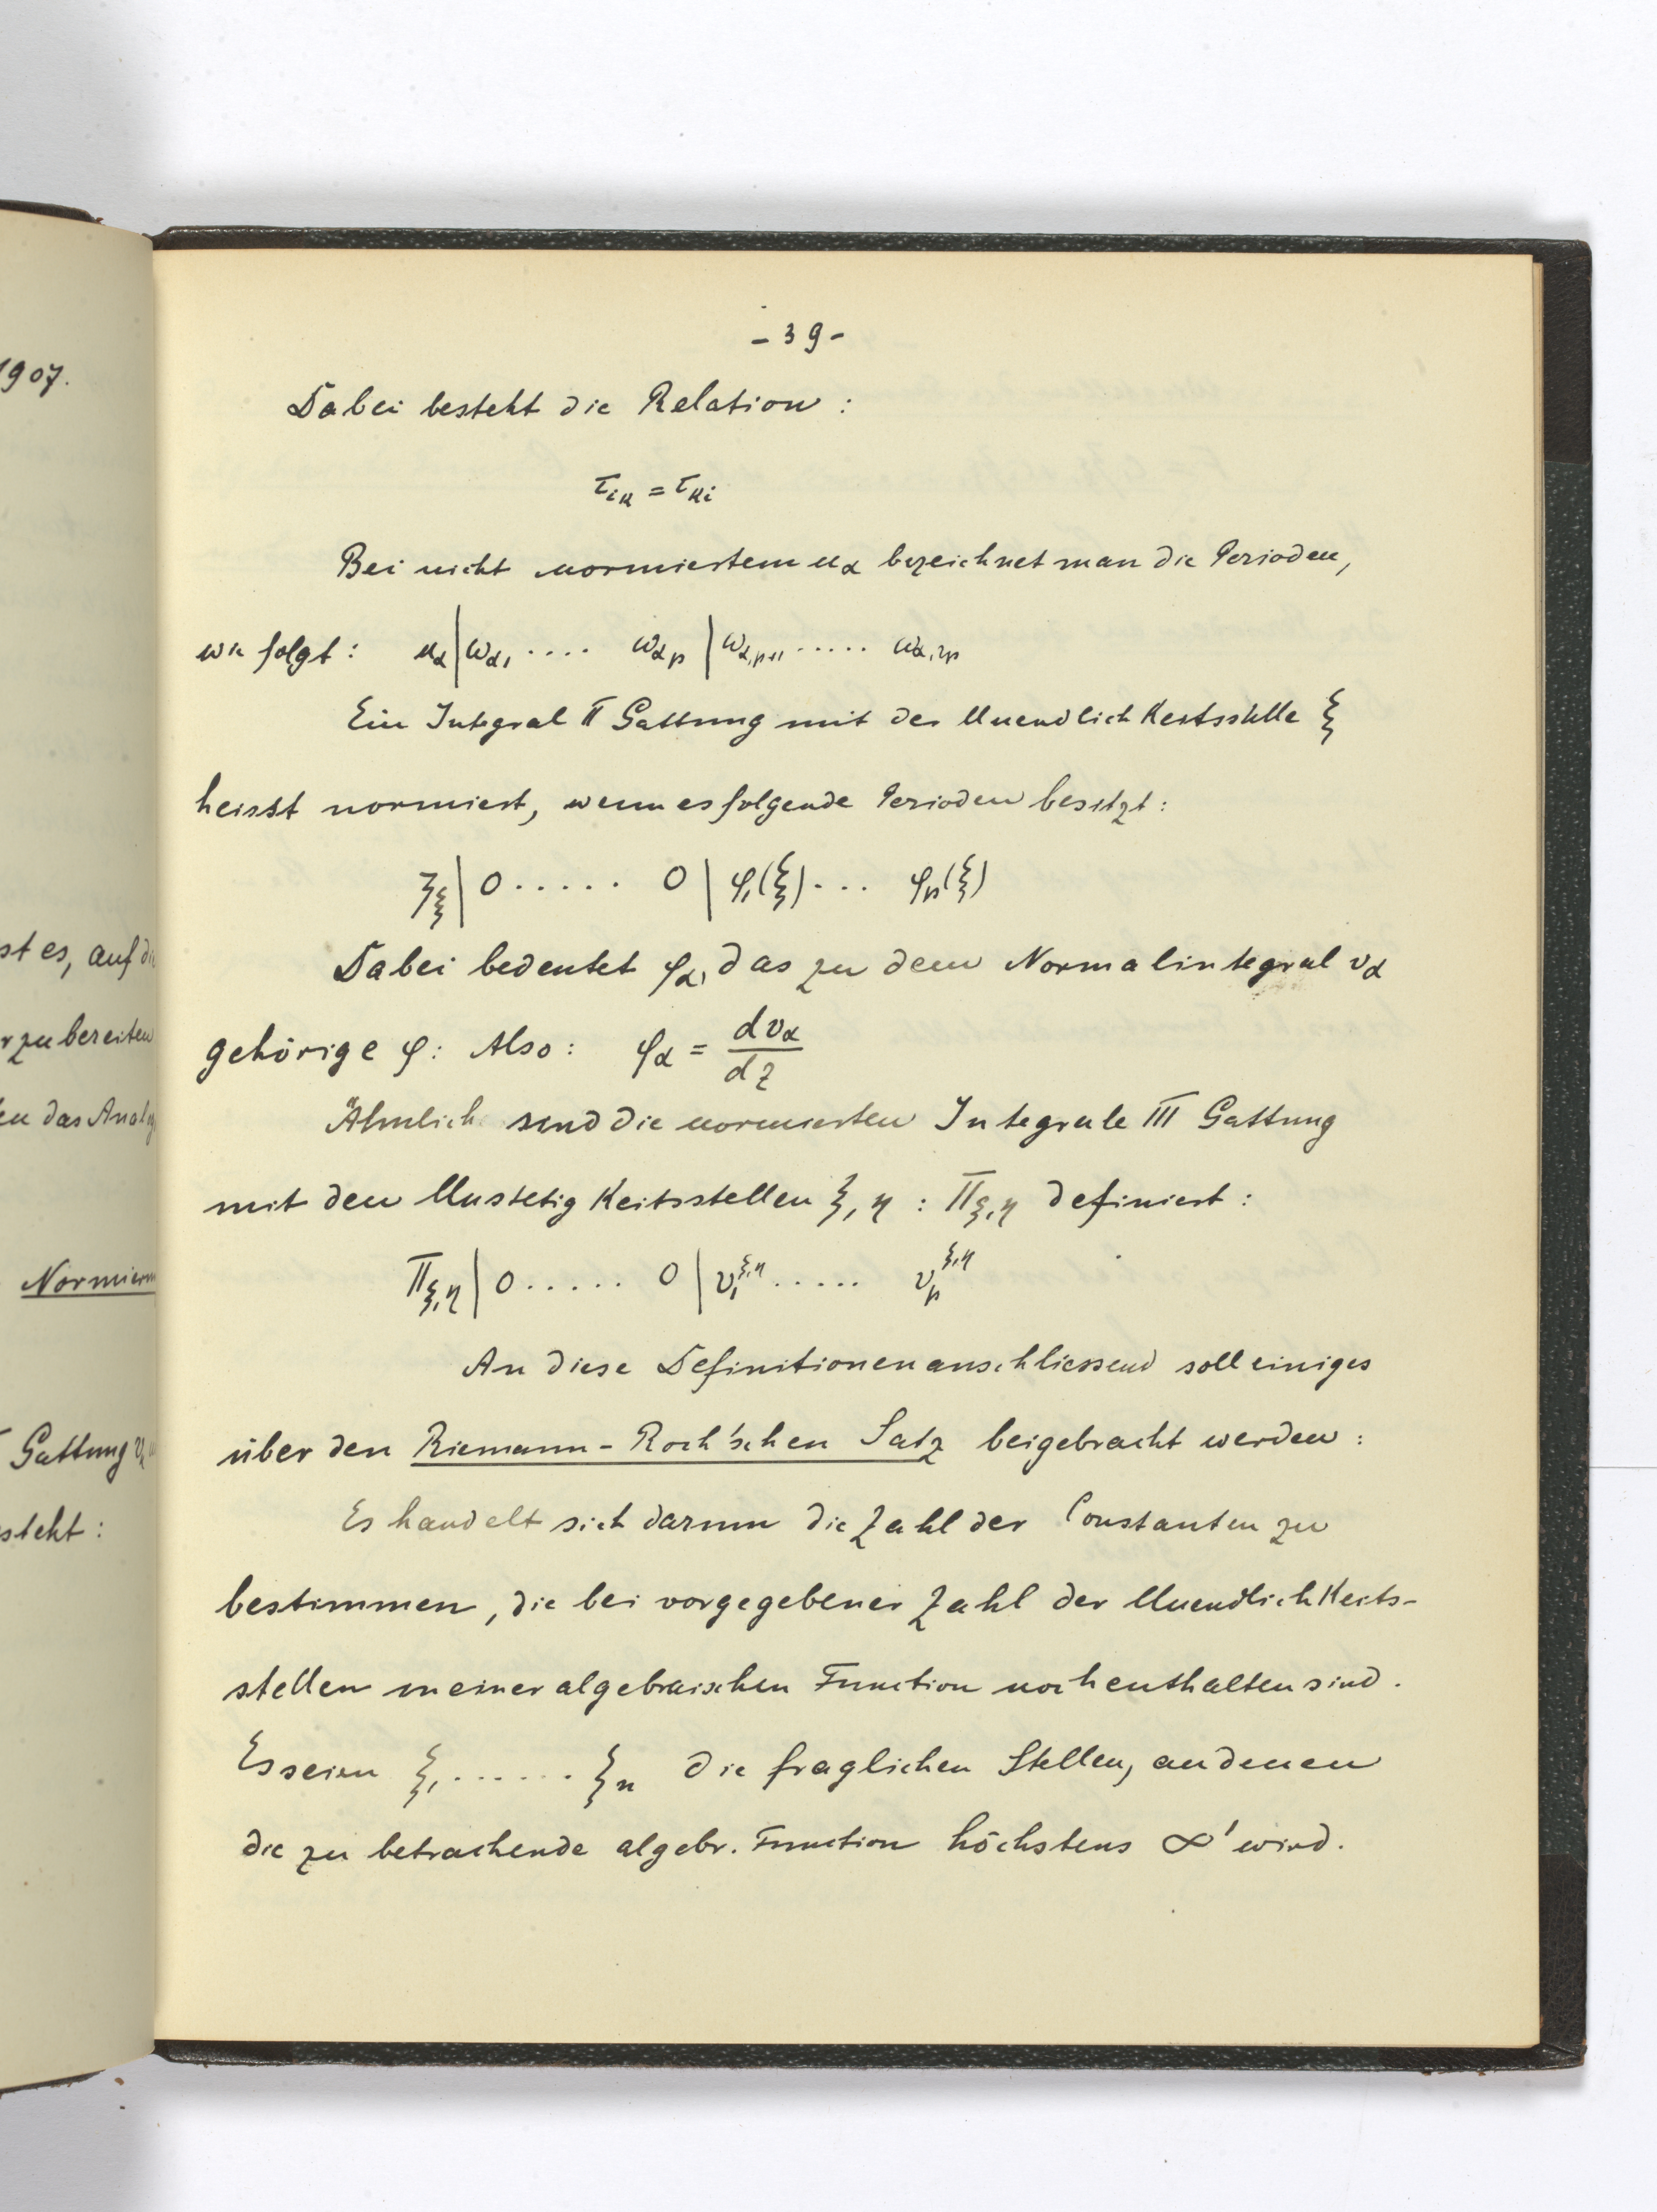 1907.
st es, auf die
zubereiten
das Analy
Normierun
Gattung
steht:
- 39 -
Dabei besteht die Relation:
τ_{ik} = τ_{ki}
Bei nicht normiertem u_α bezeichnet man die Perioden,
wie folgt: u_α | ω_{α1} .... ω_{αp} | ω_{α,p+1} ..... ω_{α,2p}
Ein Integral II Gattung mit der Unendlichkeitsstelle ξ
heisst normiert, wenn es folgende Perioden besitzt:
ζ_ξ | 0 ..... 0 | φ_1(ξ) ... φ_p(ξ)
Dabei bedeutet φ_α, das zu dem Normalintegral v_α
gehörige φ: Also: φ_α = dv_α/dz
Ähnlich sind die normierten Integrale III Gattung
mit den Unstetigkeitsstellen ξ, η : Π_{ξ,η} definiert:
Π_{ξ,η} | 0 ..... 0 | v_1^{ξ,η} ..... v_p^{ξ,η}
An diese Definitionen anschliessend soll einiges
über den Riemann-Roch'schen Satz beigebracht werden:
Es handelt sich darum die Zahl der Constanten zu
bestimmen, die bei vorgegebener Zahl der Unendlichkeits-
stellen in einer algebraischen Function noch enthalten sind.
Es seien ξ_1 ...... ξ_n die fraglichen Stellen, an denen
die zu betrachende algebr. Function höchstens ∞' wird.